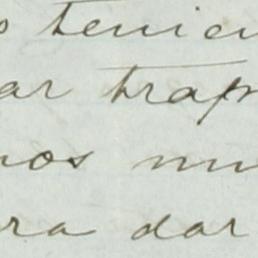 tenien
ar trap
nos mu
ra dar